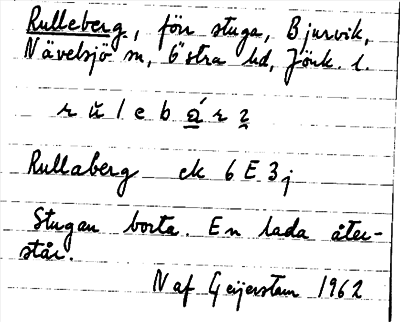 Rulleberg, förr stuga, Bjurvik,
Nävelsjö sn, Östra hd, Jönk. l.
r ŭ l e b á r z
Rullaberg ek 6 E 3j
Stugan borta. En lada åter-
står.
N af Geijerstam 1962